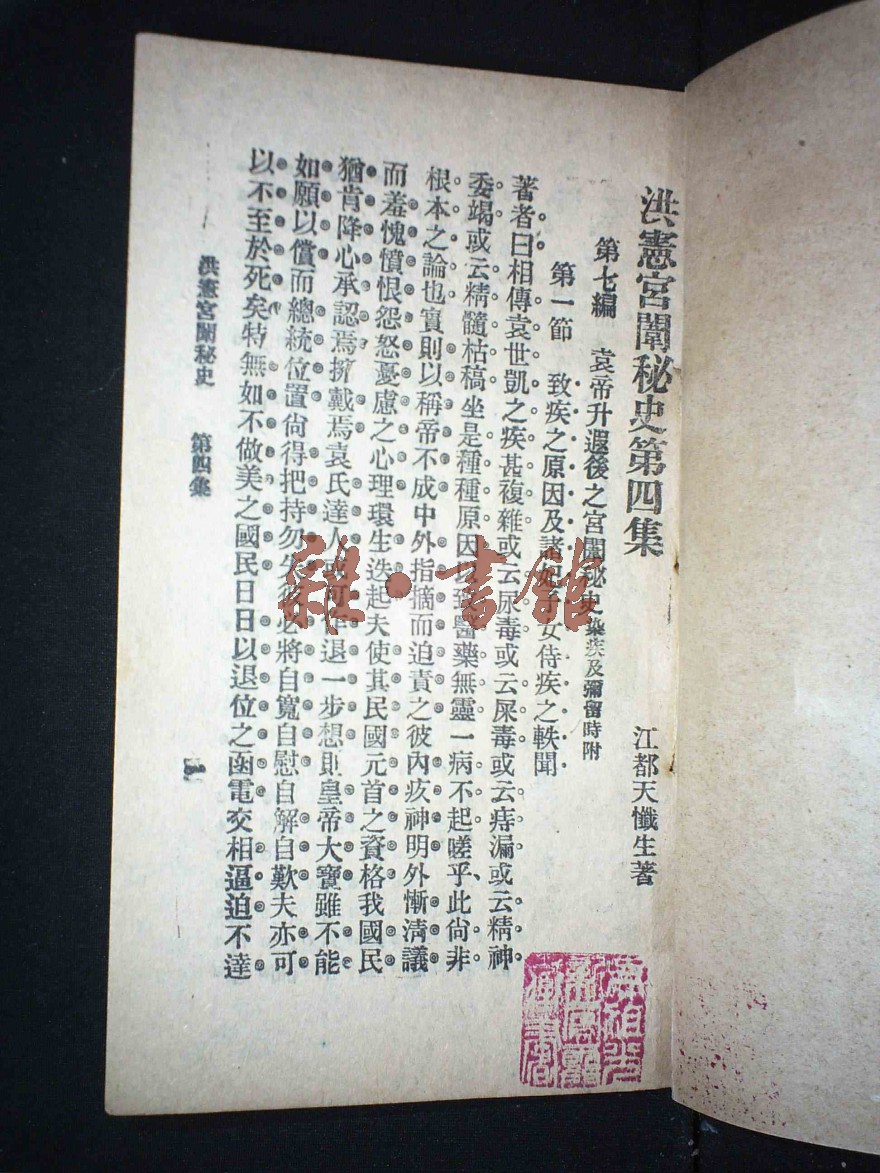 洪憲宮闈秘史第四集
江都天懺生著
第七編 袁帝升遐後之宮闈秘史染疾及彌留時附
第一節 致疾之原因及諸妃子女侍疾之軼聞
著者曰相傳袁世凱之疾甚複雜或云尿毒或云屎毒或云痔漏或云精神
委竭或云精髓枯稿坐是種種原因以致醫藥無靈一病不起嗟乎此尙非
根本之論也實則以稱帝不成中外指摘而迫責之彼內疚神明外慚淸議
而羞愧憤恨怨怒憂慮之心理環生迭起夫使其民國元首之資格我國民
猶肯降心承認焉擁戴焉袁氏達人或可作退一步想則皇帝大寶雖不能
如願以償而總統位置尙得把持勿失彼必將自寬自慰自解自歎夫亦可
以不至於死矣特無如不做美之國民日日以退位之函電交相逼迫不達
洪憲宮闈秘史 第四集
一
雜·書館